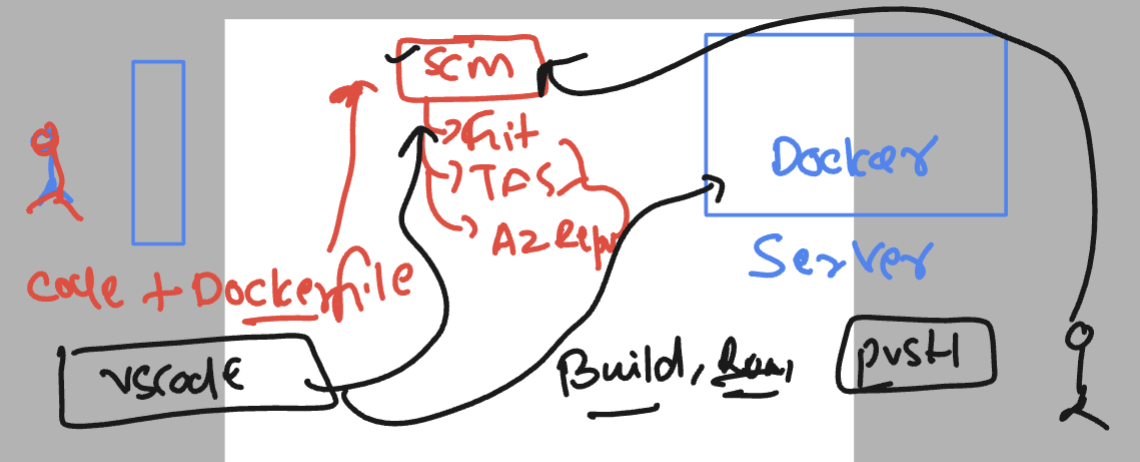 scm
Git
TFS
Az Repo
Docker
Server
code + Dockerfile
vscode
Build, Run,
push